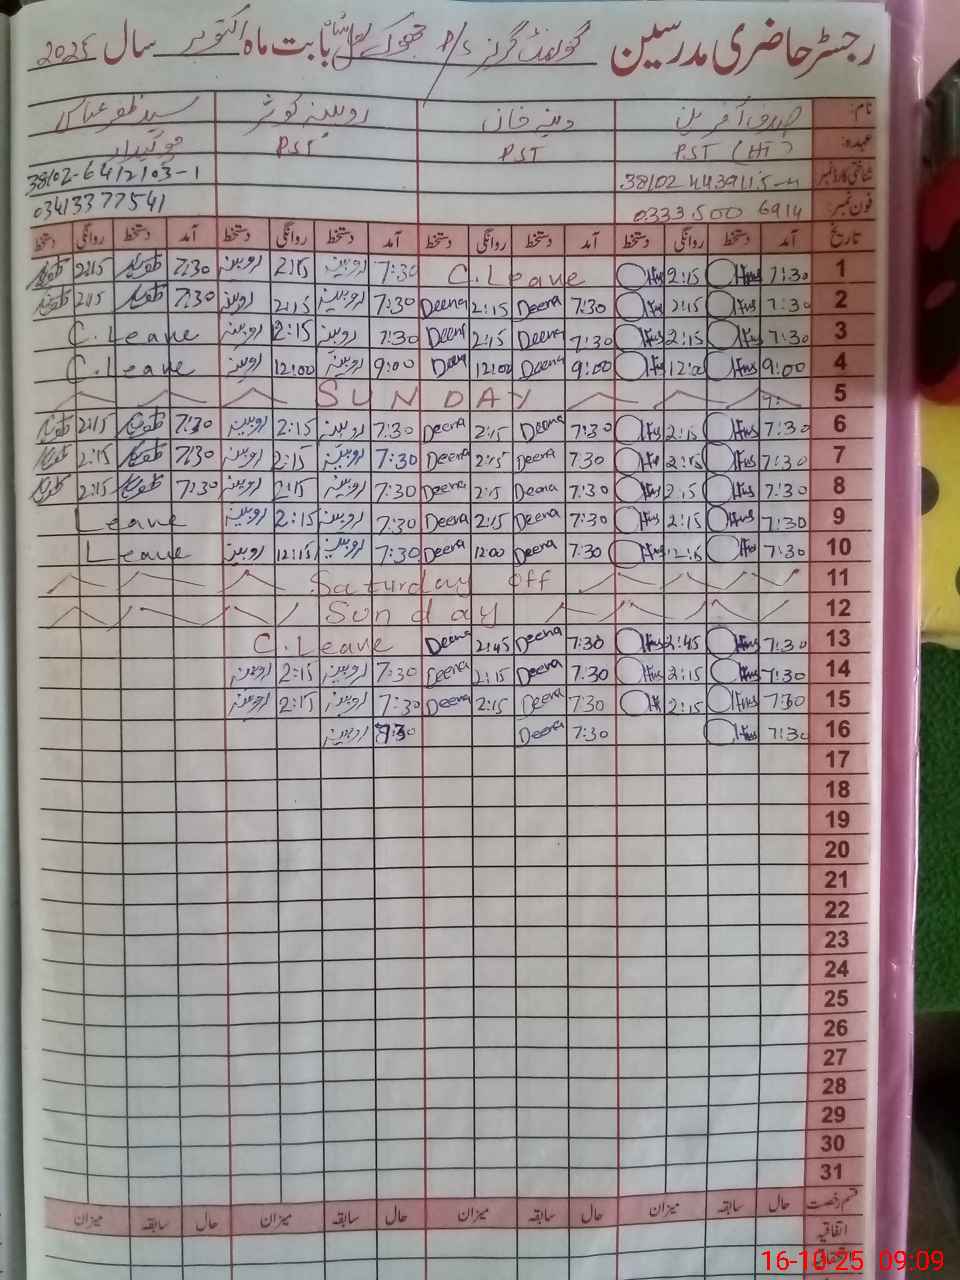 رجسٹر حاضری مدرسین گورنمنٹ گرلز P/S بابت ماہ اکتوبر سال 2025
نام: دینہ خان روبینہ کوثر سید ظفر عباس
عہدہ: PST (HT) PST PST چوکیدار
شناختی کارڈ نمبر 38102-6412103-1
فون نمبر: 0333 500 6914 03413377541
تاریخ آمد دستخط روانگی دستخط آمد دستخط روانگی دستخط آمد دستخط روانگی دستخط آمد دستخط روانگی دستخط
1 7:30 2:15 C.Leave 7:30 روبینہ 2:15 روبینہ 7:30 2:15
2 7:30 2:15 7:30 Deena 2:15 Deena 7:30 روبینہ 2:15 روبینہ 7:30 2:15
3 7:30 2:15 7:30 Deena 2:15 Deena 7:30 روبینہ 2:15 روبینہ C.Leave
4 9:00 12:00 9:00 Deena 12:00 Deena 9:00 روبینہ 12:00 روبینہ C.Leave
5 SUNDAY
6 7:30 2:15 7:30 Deena 2:15 Deena 7:30 روبینہ 2:15 روبینہ 7:30 2:15
7 7:30 2:15 7:30 Deena 2:15 Deena 7:30 روبینہ 2:15 روبینہ 7:30 2:15
8 7:30 2:15 7:30 Deena 2:15 Deena 7:30 روبینہ 2:15 روبینہ 7:30 2:15
9 7:30 2:15 7:30 Deena 2:15 Deena 7:30 روبینہ 2:15 روبینہ Leave
10 7:30 12:15 7:30 Deena 12:00 Deena 7:30 روبینہ 12:15 روبینہ Leave
11 Saturday off
12 Sunday
13 7:30 2:45 7:30 Deena 2:45 Deena C.Leave
14 7:30 2:15 7:30 Deena 2:15 Deena 7:30 روبینہ 2:15 روبینہ
15 7:30 2:15 7:30 Deena 2:15 Deena 7:30 روبینہ 2:15 روبینہ
16 7:30 7:30 Deena 7:30 روبینہ
17
18
19
20
21
22
23
24
25
26
27
28
29
30
31
قسم رخصت حال سابقہ میزان حال سابقہ میزان حال سابقہ میزان حال سابقہ میزان
اتفاقیہ
16-10-25 09:09